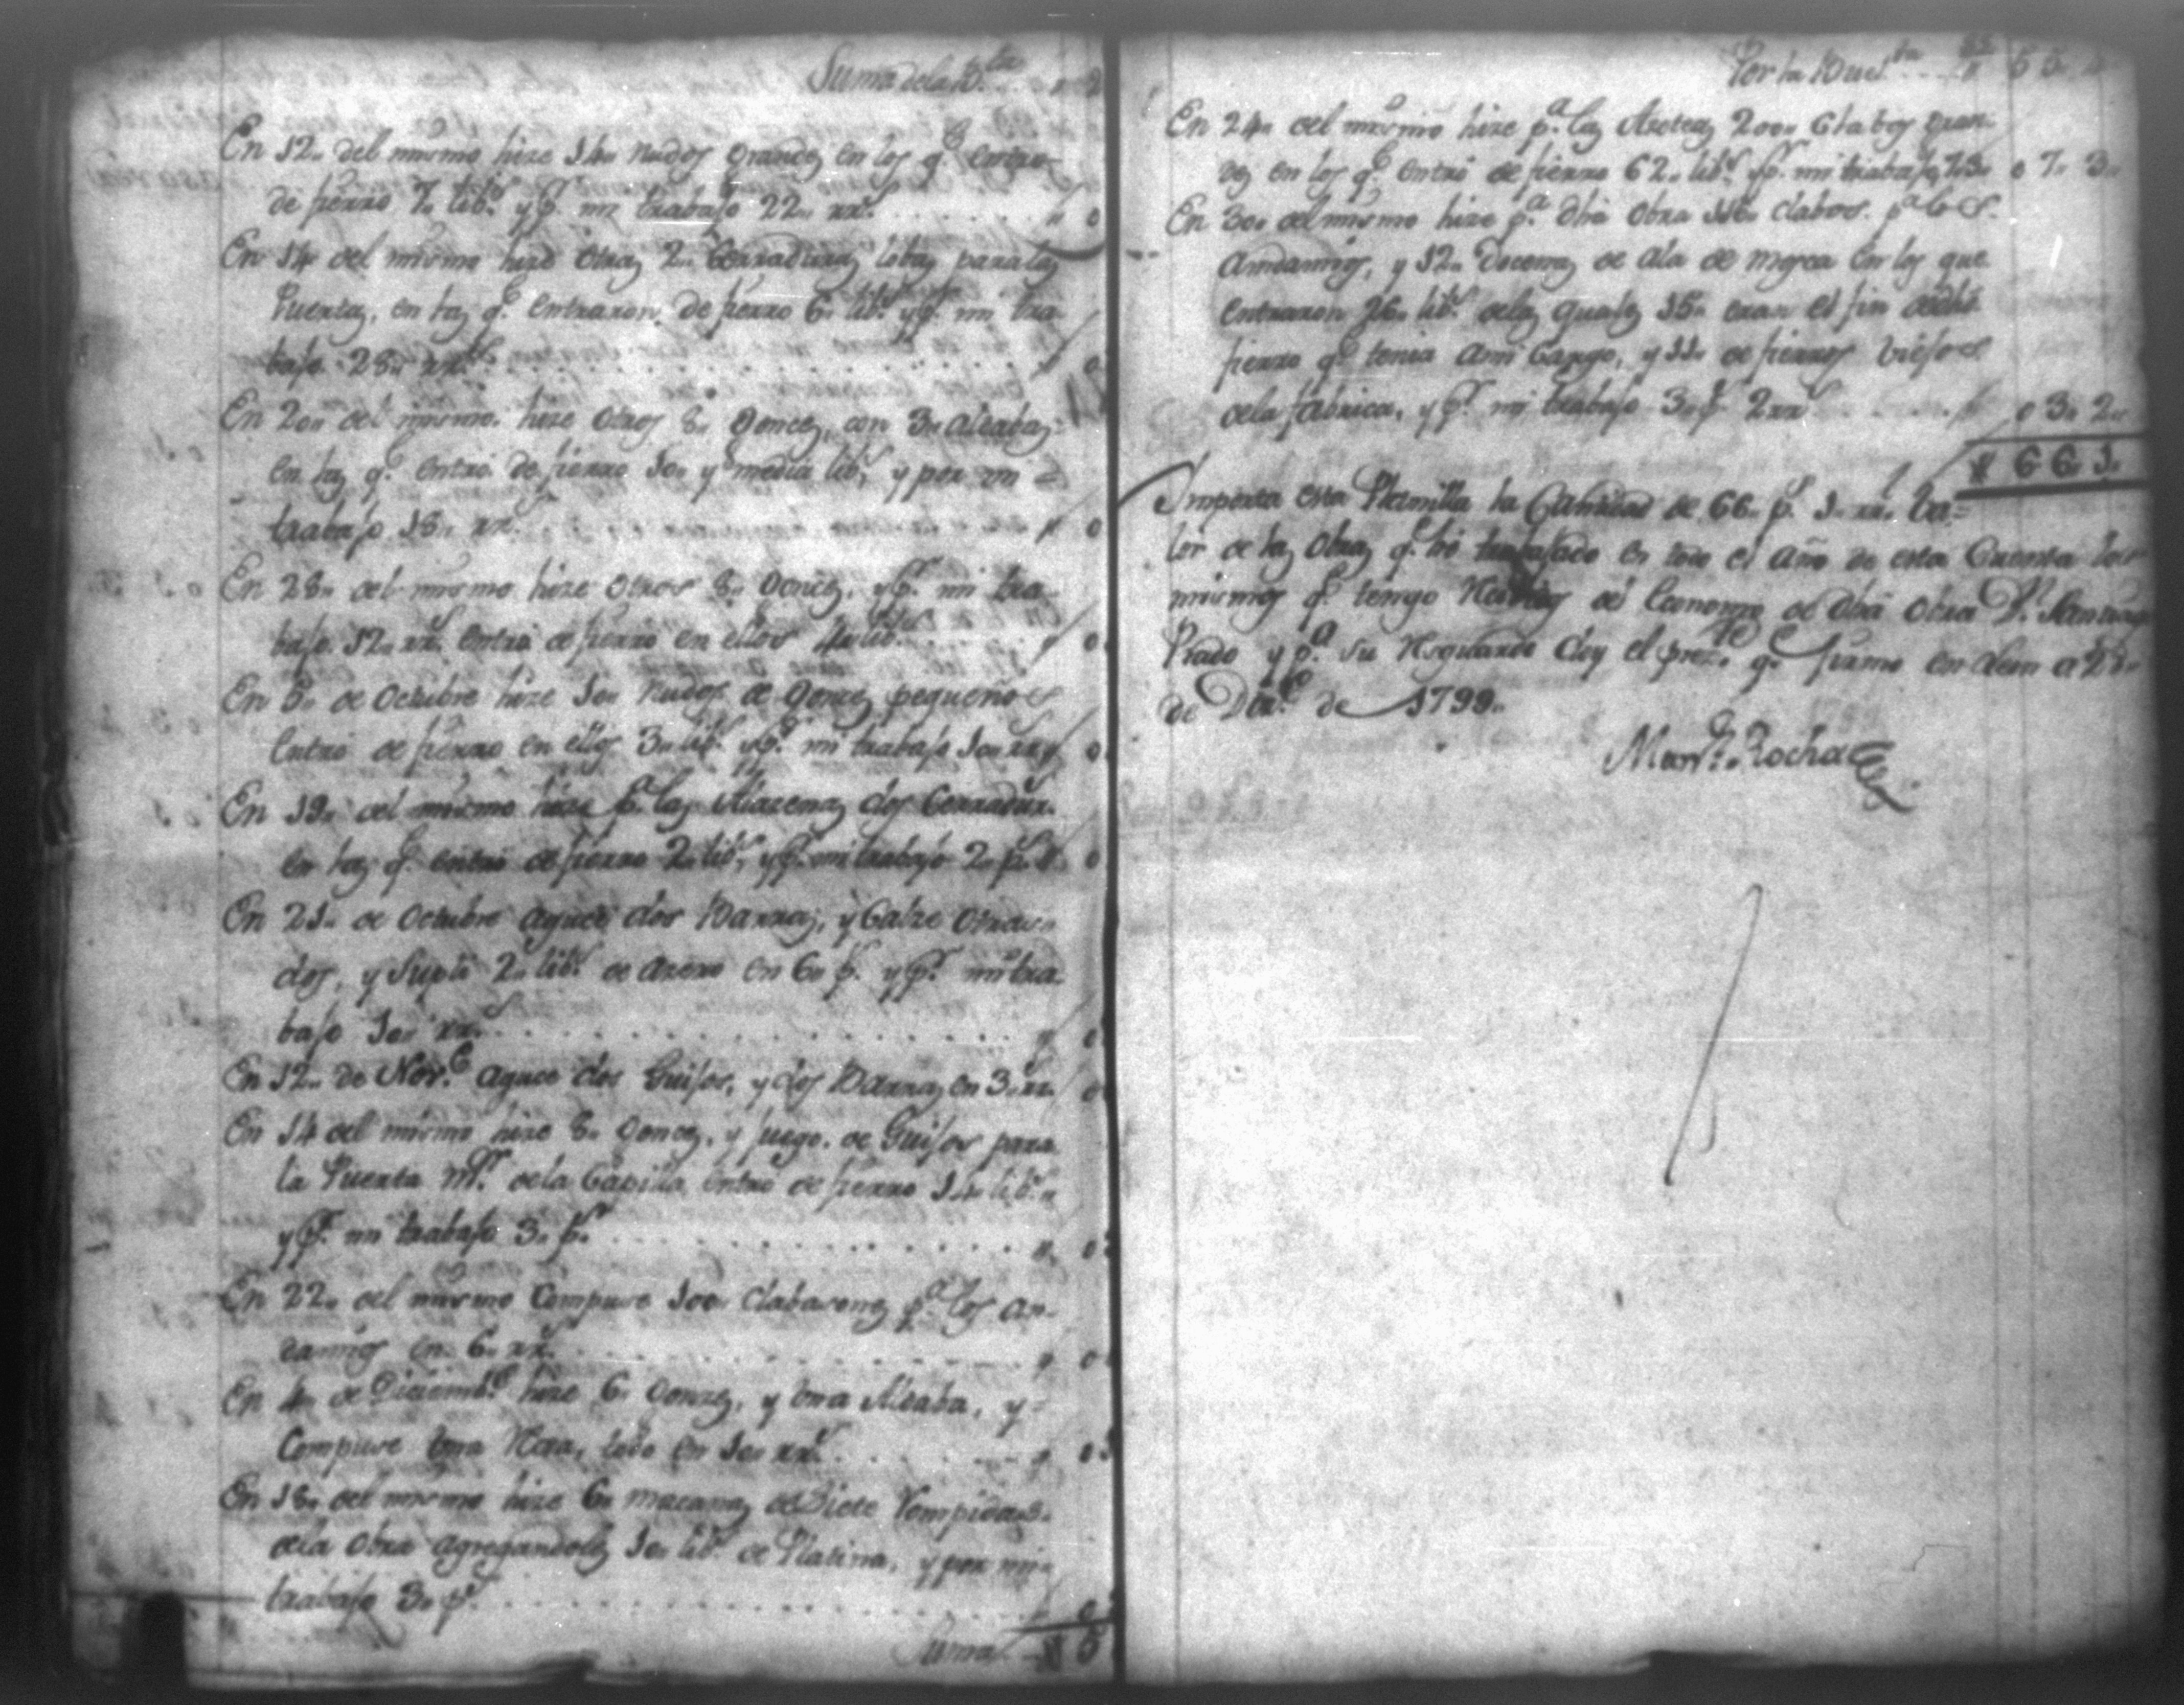 Suma dela b.ta
En 12,, del mismo hize 14,, nudos grandes en los q.e entro
de fierro 7,, lib.s y p.r mi trabajo 22,, rr.s
En 14 del mismo hize otras 2,, Cerraduras lobas para las
Puertas, en las q.e entraron de fierro 6,, lib.s y p.r mi tra
bajo 28,, rr.s
En 20,, del mismo hize otros 8,, gonces, con 3,, aldabas
en las q.e entró de fierro 10,, y media lib.s y por mi =
trabajo 18,, rr.s
En 28,, del mismo hize otros 8,, gonces, y p.r mi tra
bajo 12,, rr.s entró de fierro en ellos 4,, lib.s
En 8,, de Octubre hize 10,, nudos de gonces pequeños
Entró de fierro en ellos 3,, lib.s y p.r mi trabajo 10,, rr.s
En 19,, del mismo hize p.a las Alazenas dos Cerradur.s
en las q.e entró de fierro 2,, lib.s y p.r mi trabajo 2,, p.s
En 21,, de Octubre aguce dos Barras, y Calze otras
dos, y Supli 2,, lib.s de azero en 6,, p.s y p.r mi tra
bajo 10,, rr.s
En 12,, de Nov.e aguce dos Guijos, y dos Barras en 3,, rr.
En 14 del mismo hize 8,, gonces, y juego de Guijos para
la Puerta m.r dela Capilla entró de fierro 14,, lib.s
y p.r mi trabajo 3,, p.s
En 22,, del mismo Compuse 100,, clabasones p.a los an-
damios en 6,, rr.s
En 4,, de Diciemb.e hize 6,, gonzes, y una Aldaba, y =
Compuse una Rexa, todo en 10,, rr.s
En 18,, del mismo hize 6,, macanas de Siete rompidas
dela obra agregandoles 10,, lib.s de Platina, y por mi
trabajo 3,, p.s
Suma
Por la buel.ta
En 24,, del mismo hize p.a las 200,, Clabos gran-
des en los q.e entró de fierro 62,, lib.s y p.r mi trabajo 7 3,, 0 7,, 3,,
En 30,, del mismo hize p.a dha obra 116,, clabos p.a los
Andamios, y 12,, Docenas de ala de mosca en los que
entraron 26,, lib.s delas quales 15,, eran el fin del
fierro q.e tenia a mi Cargo, y 11,, de fierros biejos
dela fabrica, y p.r mi trabajo 3,, p.s 2 rr.s 0 3,, 2,,
6 6,, 1,,
Importa esta Planilla la Cantidad de 66,, p.s 1,, rr.l ba-
lor de las obras q.e hé trabajado en todo el año de esta Cuenta los
mismos q.e tengo del Economo de dha obra D.n Santiago
Prado y p.a su resguardo doy el prez.te q.e firmo en
de Diz.e de 1799,,
Mar.n Rocha